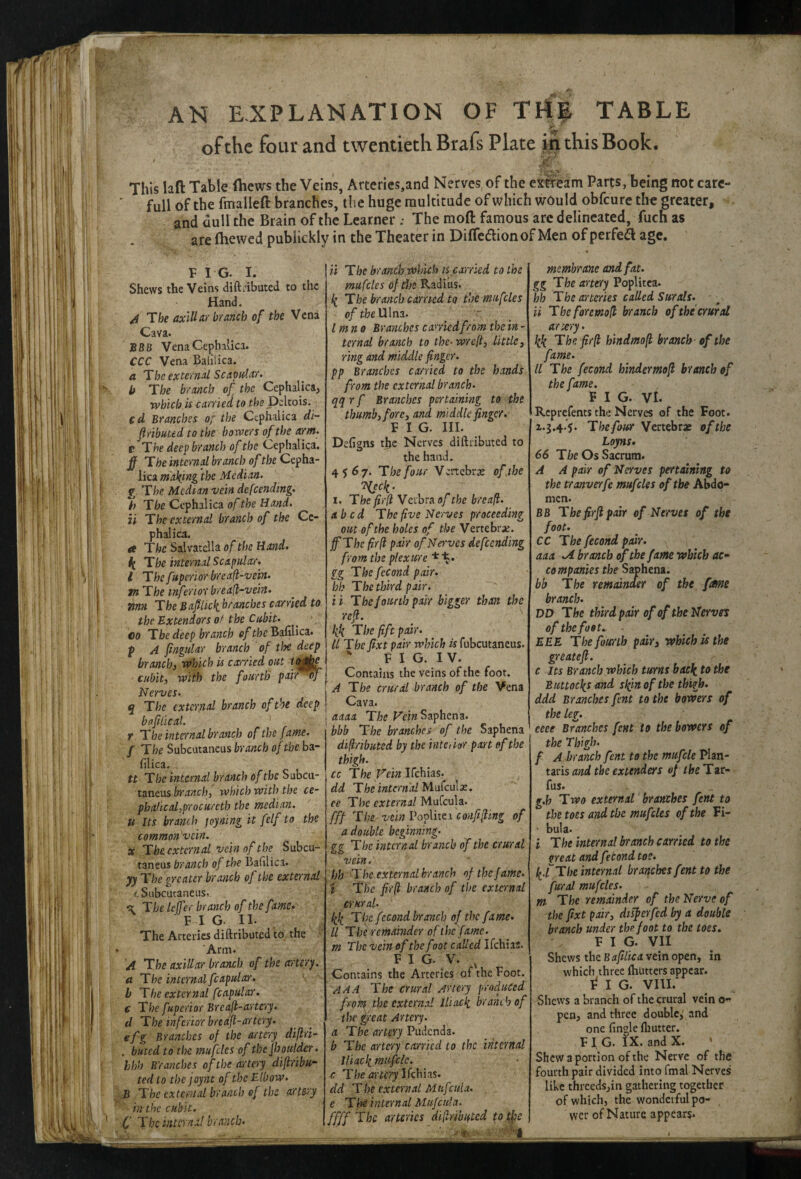 AN EXPLANATION OF THE TABLE
of the four and twentieth Brass Plate in this Book.
This last Table shews the Veins, Arteries, and Nerves of the extream Parts, being not care-
full of the smallest branches, the huge multitude of which would obscure the greater,
and dull the Brain of the Learner : The most famous are delineated, such as
are shewed publickly in the Theater in Dissection of Men of perfect age.
F I G. I.
Shews the Veins distributed to the
Hand.
A The axillar branch of the Vena
Cava.
BBB Vena Cephalica.
CCC Vena Basilica.
a The external Scapular.
b The branch of the Cephalica,
which is carried to the Deltois.
c d Branches of the Cephalica di-
stributed to the bowers of the arm.
e The deep branch of the Cephalica.
ff The internal branch of the Cepha-
lica making the Median.
g The Median vein descending.
h The Cephalica of the Hand.
ii The external branch of the Ce-
phalica.
The Salvatella of the Hand.
k The internal Scapular.
l The superior breast-vein.
m The inferior breast-vein.
nnn The Basilick branches carried to
the Extendors of the Cubit.
oo The deep branch of the Basilica.
p A singular branch of the deep
branch, which is carried out to the
cubit, with the fourth pair of
Nerves.
q The external branch of the deep
basilical.
r The internal branch of the same.
s The Subcutaneus branch of the ba-
silica.
tt The internal branch of the Subcu-
taneus branch, which with the ce-
phalical, procureth the median.
u Its branch joyning it self to the
common vein.
x The external vein of the Subcu-
taneus branch of the Basilica.
yy The greater branch of the external
Subcutaneus.
The lesser branch of the same.
F I G. II.
The Arteries distributed to the
Arm.
A The axillar branch of the artery.
a The internal scapular.
b The external scapular.
c The superior Breast-artery.
d The inferior breast-artery.
efg Branches of the artery distri-
buted to the muscles of the shoulder.
hhh Branches of the artery distribu-
ted to the joynt of the Elbow.
B The external branch of the artery
in the cubit.
C The internal branch.
ii The branch which is carried to the
muscles of the Radius.
k The branch carried to the muscles
of the Ulna.
l m n o Branches carried from the in-
ternal branch to the wrest, little,
ring and middle finger.
pp Branches carried to the hands
from the external branch.
qq r s Branches pertaining to the
thumb, fore, and middle finger.
F I G. III.
Designs the Nerves distributed to
the hand.
4 5 6 7. The four Vertebræ of the
Neck.
1. The first Verbra of the breast.
a b c d The five Nerves proceeding
out of the holes of the Vertebræ.
ff The first pair of Nerves descending
from the plexure * *.
gg The second pair.
hh The third pair.
i i The fourth pair bigger than the
rest.
kk The fift pair.
ll The sixt pair which is subcutaneus.
F I G. IV.
Contains the veins of the foot.
A The crural branch of the Vena
Cava.
aaaa The Vein Saphena.
bbb The branches of the Saphena
distributed by the interior part of the
thigh.
cc The Vein Ischias.
dd The internal Musculæ.
ee The external Muscula.
fff The vein Poplitea consisting of
a double beginning.
gg The internal branch of the crural
vein.
hh The external branch of the same.
i The first branch of the external
crural.
kk The second branch of the same.
ll The remainder of the same.
m The vein of the foot called Ischias.
F I G. V.
Contains the Arteries of the Foot.
AAA The crural Artery produced
from the external Iliack branch of
the great Artery.
a The artery Pudenda.
b The artery carried to the internal
Iliack muscle.
c The artery Ischias.
dd The external Muscula.
e The internal Muscula.
ffff The arteries distributed to the
membrane and fat.
gg The artery Poplitea.
hh The arteries called Surals.
ii The foremost branch of the crural
artery.
kk The first hindmost branch of the
same.
ll The second hindermost branch of
the same.
F I G. VI.
Represents the Nerves of the Foot.
2.3.4.5. The four Vertebræ of the
Loyns.
66 The Os Sacrum.
A A pair of Nerves pertaining to
the tranverse muscles of the Abdo-
men.
BB The first pair of Nerves of the
foot.
CC The second pair.
aaa A branch of the same which ac-
companies the Saphena.
bb The remainder of the same
branch.
DD The third pair of of the Nerves
of the foot.
EEE The fourth pair, which is the
greatest.
c Its Branch which turns back to the
Buttocks and skin of the thigh.
ddd Branches sent to the bowers of
the leg.
eeee Branches sent to the bowers of
the Thigh.
f A branch sent to the muscle Plan-
taris and the extenders of the Tar-
sus.
g.h Two external branches sent to
the toes and the muscles of the Fi-
bula.
i The internal branch carried to the
great and second toe.
k.l The internal branches sent to the
sural muscles.
m The remainder of the Nerve of
the sixt pair, dispersed by a double
branch under the foot to the toes.
F I G. VII
Shews the Basilica vein open, in
which three shutters appear.
F I G. VIII.
Shews a branch of the crural vein o-
pen, and three double, and
one single shutter.
F I G. IX. and X.
Shew a portion of the Nerve of the
fourth pair divided into smal Nerves
like threeds, in gathering together
of which, the wonderful po-
wer of Nature appears.